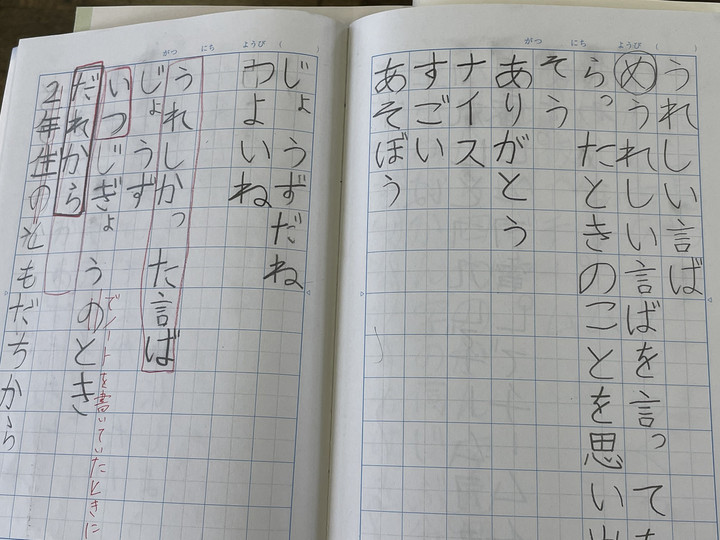 がつ にち ようび ( )
うれしい言ば
めうれしい言ばを言って
らったときのことを思い
そう
ありがとう
ナイス
すごい
あそぼう
がつ にち ようび ( )
じょうずだね
つよいね
うれしかった言ば
じょうず
いつじぎょうのとき
でノートを書いていたときに
だれから
2年生のともだちから